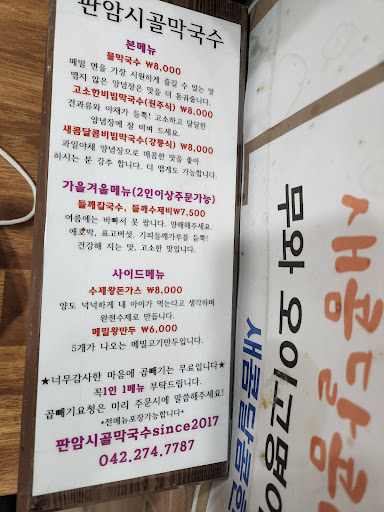 판암시골막국수
본메뉴
물막국수 ₩8,000
메밀 면을 가장 시원하게 즐길 수 있는 맛
맵지 않은 양념장은 맛을 더 돋궈줍니다.
고소한비빔막국수(원주식) ₩8,000
견과류와 야채가 듬뿍! 고소하고 달달한
양념장에 잘 비벼 드세요.
새콤달콤비빔막국수(강릉식) ₩8,000
과일야채 양념으로 매콤한 맛을 좋아
하시는 분 강추 합니다. 더 맵게도 가능합니다.
가을겨울메뉴(2인이상주문가능)
들깨칼국수, 들깨수제비₩7,500
여름에는 바빠서 못 팝니다. 양해해주세요.
애호박, 표고버섯, 기피들깨가루를 듬뿍!
건강해 지는 맛, 고소한 맛입니다.
사이드메뉴
수제왕돈가스 ₩8,000
양도 넉넉하게 내 아이가 먹는다고 생각하며
완전수제로 만듭니다.
메밀왕만두 ₩6,000
5개가 나오는 메밀고기만두입니다.
★너무감사한 마음에 곱빼기는 무료입니다★
꼭1인 1메뉴 부탁드립니다.
곱빼기요청은 미리 주문시에 말씀해주세요!
*전메뉴포장가능합니다*
판암시골막국수since2017
042.274.7787
새콤달콤
무와 오이고명이
새콤달콤한